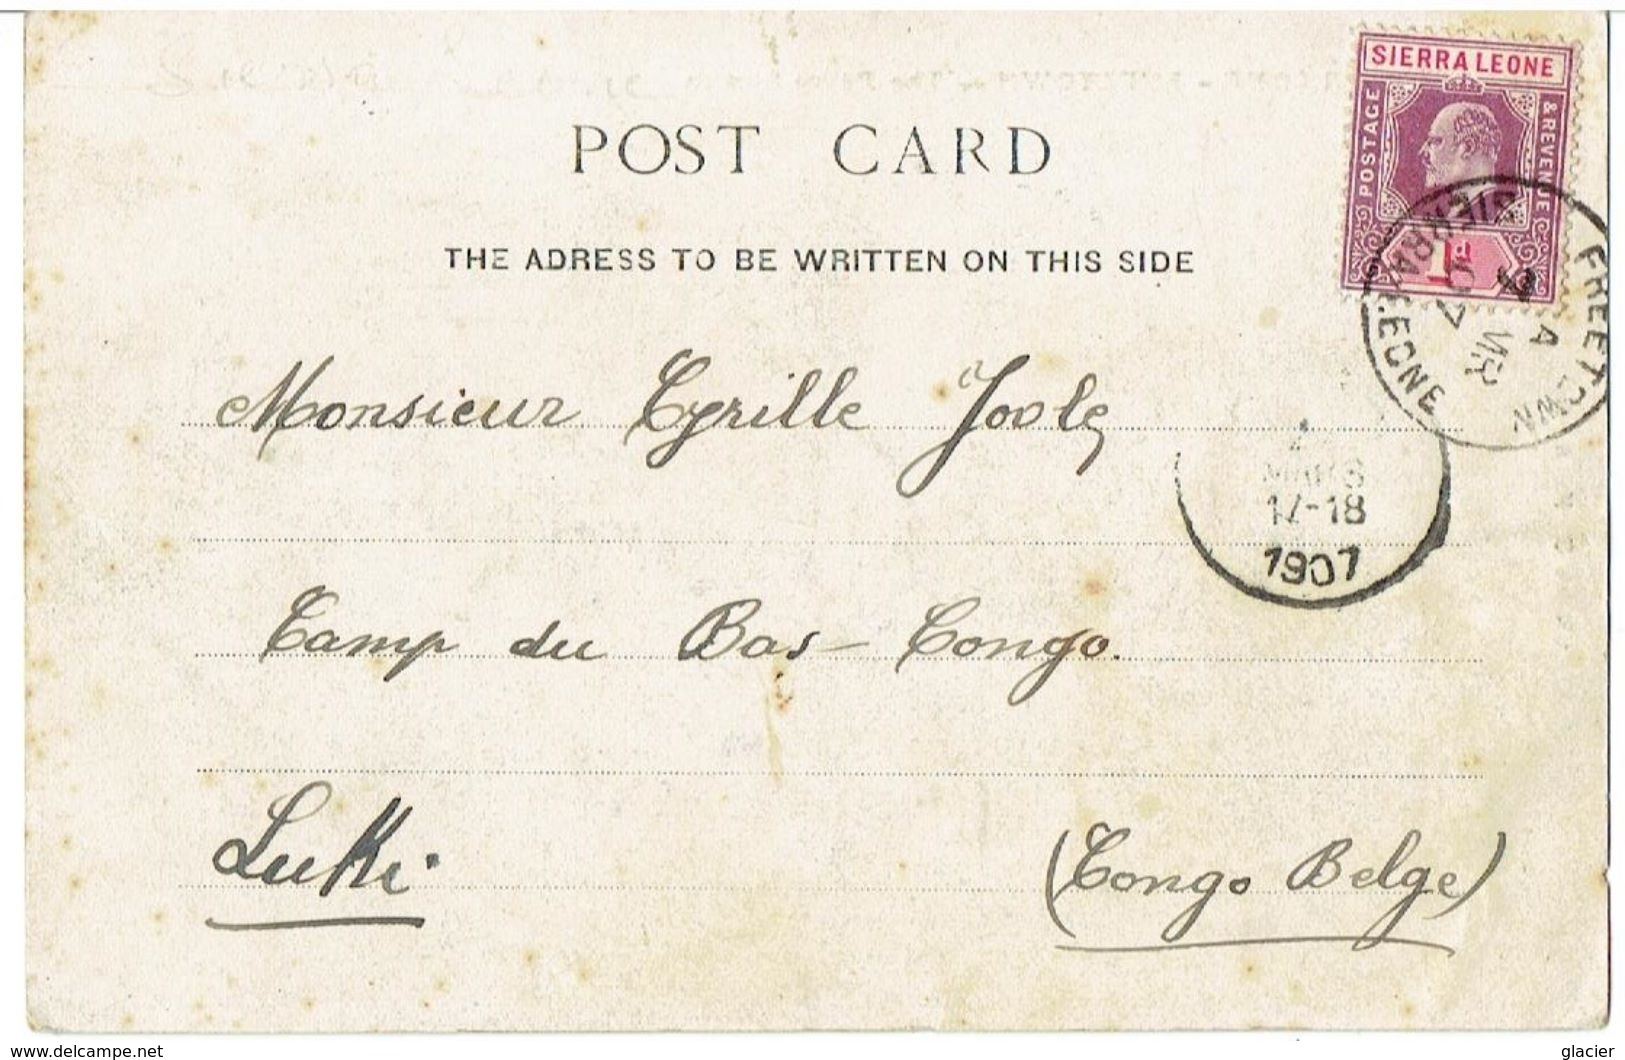 POST CARD
THE ADRESS TO BE WRITTEN ON THIS SIDE
SIERRA LEONE
POSTAGE
& REVENUE
1d
FREETOWN
SIERRA LEONE
A
07
Monsieur Cyrille
MARS
17-18
1907
Camp du Bas-Congo.
Luki
(Congo Belge)
www.delcampe.net
glacier